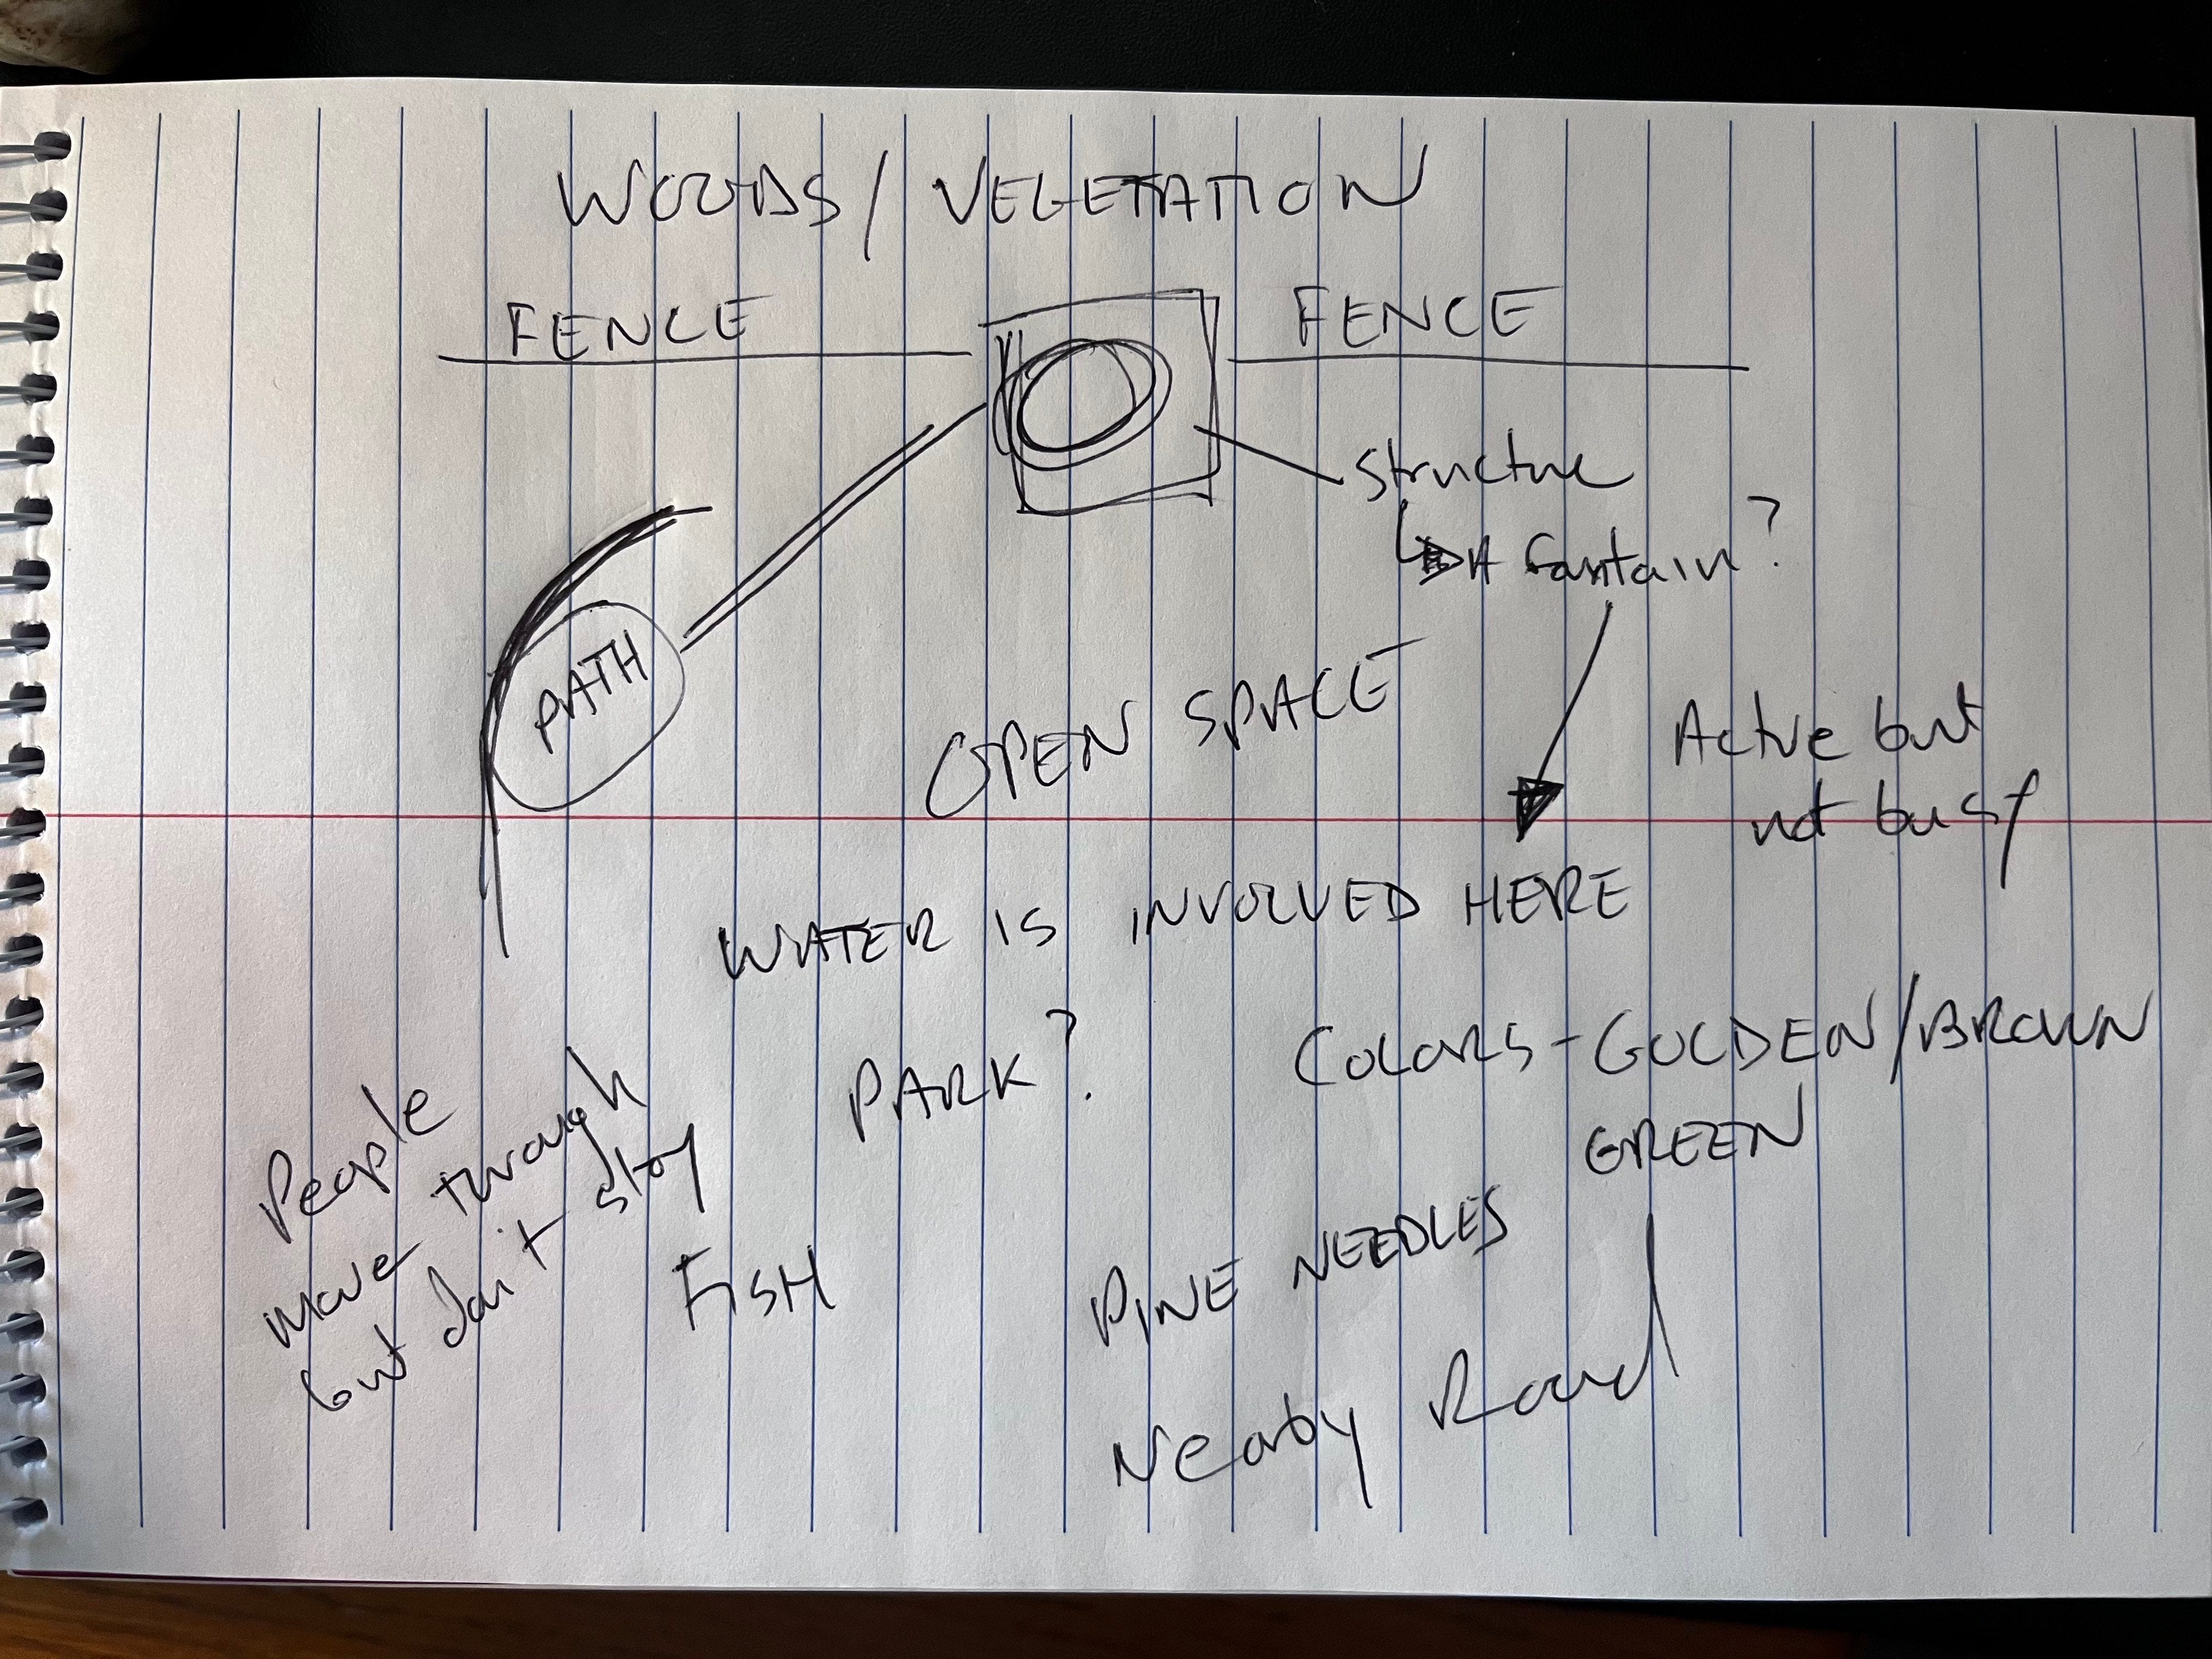 WOODS/VEGETATION
FENCE
FENCE
structure
A fountain?
PATH
OPEN SPACE
Active but
not busy
WATER IS INVOLVED HERE
PARK?
COLORS-GOLDEN/BROWN
GREEN
People
move through
but don't stay
FISH
PINE NEEDLES
Nearby Road